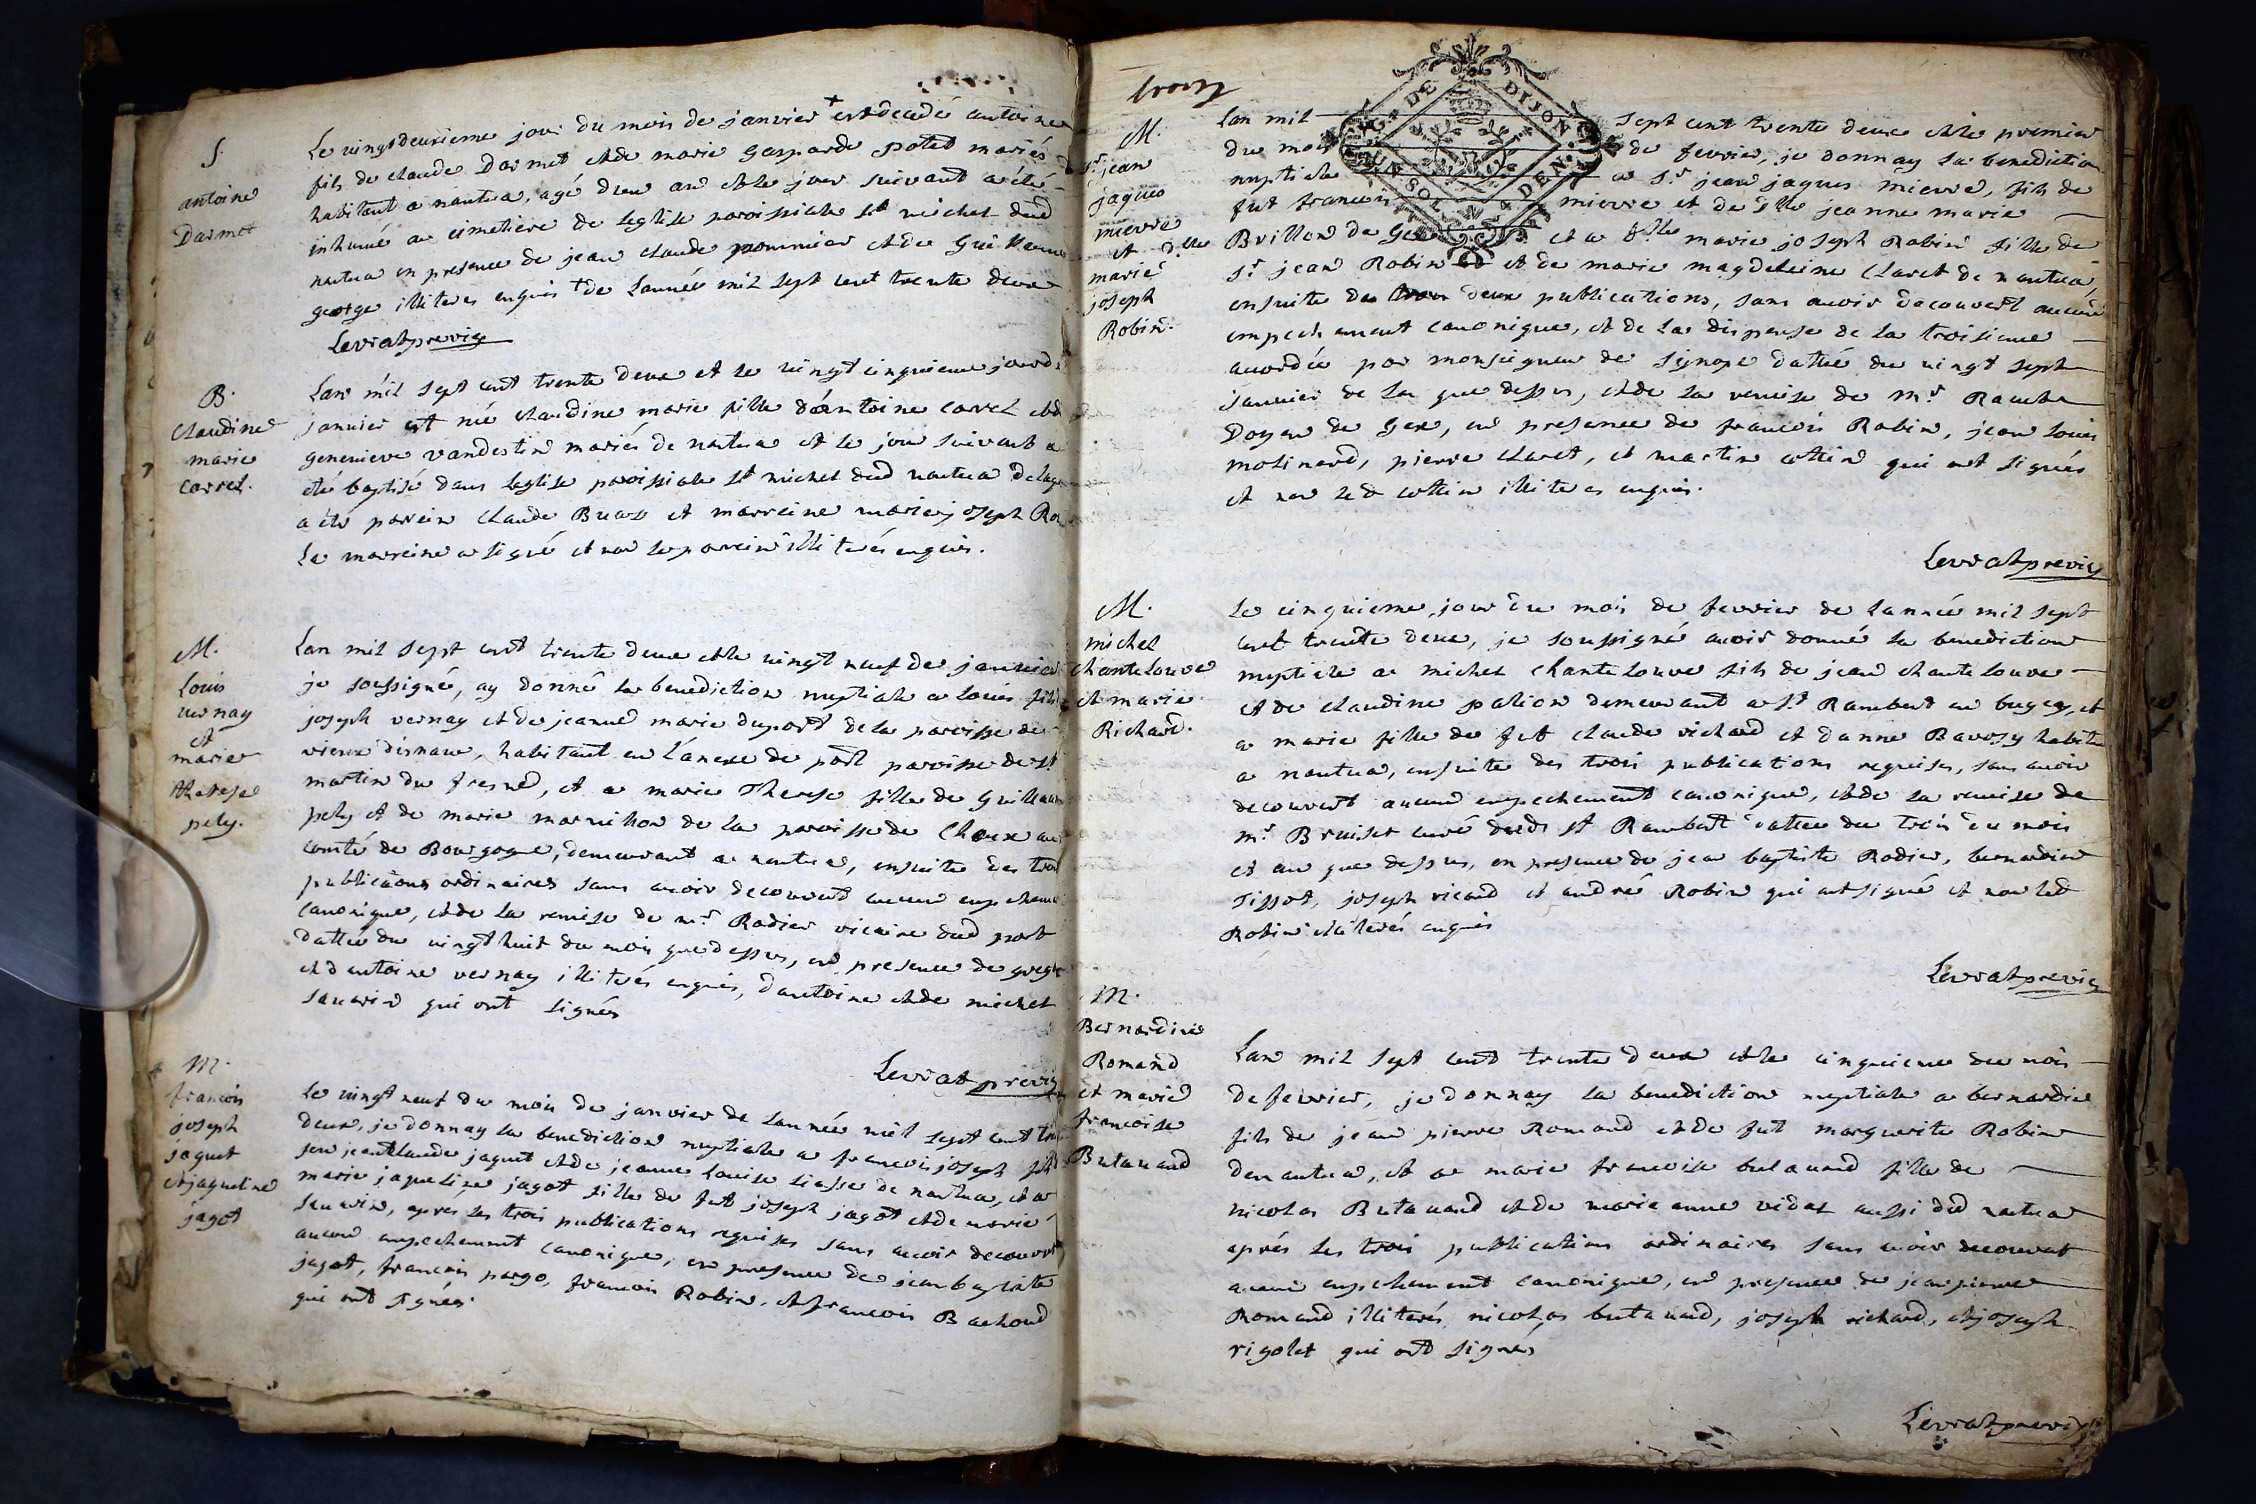 S
antoine
Darmet
Le vingtdeuxieme jour du mois de janvier + est decedé antoine
fils de claude Darmet et de marie gasparde potet mariés
habitant a nantua, agé d'un an et le jour suivant a été
inhumé au cimetiere de leglise paroissiale st michel dud
nantua en presence de jean claude pommier et de Guillaume
george illiteres enquis + de lannée mil sept cent trente deux
Levrat previc
B.
claudine
marie
Carrel.
Lan mil sept cent trente deux et le vingt cinquieme jour d
janvier est née claudine marie fille d'antoine carrel et d
genevieve vandestin mariés de nantua et le jour suivant a
eté baptisé dans leglise paroissiale st michel dud nantua
a été parrein claude et marreine marie joseph
La marreine a signé et non le parrein illiterés enquis.
M.
Louis
vernay
et
marie
therese
pely.
Lan mil sept cent trente deux et le vingt neuf de janvier
je soussigné, ay donné la benediction nuptiale a louis fils
joseph vernay et de jeanne marie duport de la paroisse de
vieux d'isnave, habitant en l'anexe de port paroisse de st
martin du fresne, et a marie Therese fille de Guillaume
pely et de marie marmillon de la paroisse de Choux au
comté de Bourgogne, demeurant a nantua, ensuite des trois
publications ordinaires sans avoir decouvert aucun empechem
canonique, et de la remise de mr Rodier vicaire dud port
dattée du vingt huit du mois que dessus, en presence de
et d'antoine vernay illiterés enquis, d'antoine et de michel
sauvin qui ont signés
Levrat previc
M.
francois
joseph
jaquet
et jaqueline
jagot
Le vingt neuf du mois de janvier de lannée mil sept cent
deux, je donnay la benediction nuptiale a francois joseph fils
feu jean claude jaquet et de jeanne louise de nantua, et a
marie jaqueline jagot fille de fut joseph jagot et de marie
sauvin, après les trois publications requises sans avoir decouvert
aucun empechement canonique, en presence de jean baptiste
jagot, francois pargo, francois Robin, et francois Bachoud
qui ont signés.
troizy
G. DE DIJON
UN SOL 4 DEN.
M.
Sr jean
jaques
mievre
et dlle
marie
joseph
Robin.
Lan mil sept cent trente deux et le premier
du mois de fevrier, je donnay la benediction
nuptiale a Sr jean jaques mievre, fils de
fut francois mievre et de dlle jeanne marie
Brillon de Gex et a dlle marie joseph Robin fille de
sr jean Robin et de marie magdeleine Claret de nantua,
ensuite de deux publications, sans avoir decouvert aucun
empechement canonique, et de la dispense de la troisieme
accordée par monseigneur de synope dattée du vingt sept
janvier de lan que dessus, et de la remise de Mr
Doyen de Gex, en presence de francois Robin, jean louis
molinard, pierre claret, et martin cottin qui ont signés
et non led cottin illiteres enquis.
Levrat previc
M.
michel
chantelouve
et marie
Richard.
Le cinquieme jour du mois de fevrier de lannée mil sept
cent trente deux, je soussigné avoir donné la benediction
nuptiale a michel chantelouve fils de jean chantelouve
et de claudine pation demeurant a st Rambert en bugey, et
a marie fille de fut claude richard et danne Ravosy habita
a nantua, ensuite des trois publications requises, sans avoir
decouvert aucun empechement canonique, et de la remise de
mr Bruiset curé dud st Rambert dattée du trois du mois
et an que dessus, en presence de jean baptiste Rodier, bernardin
Tissot, joseph ricard et andré Robin qui ont signé et non led
Robin illiterés enquis
Levrat previc
M.
Bernardin
Romand
et marie
francoise
Butavand
Lan mil sept cent trente deux et le cinquieme du mois
de fevrier, je donnay la benediction nuptiale a bernardin
fils de jean pierre Romand et de fut marguerite Robin
de nantua, et a marie francoise butavand fille de
nicolas Butavand et de marie anne vidal aussi dud nantua
après les trois publications ordinaires sans avoir decouvert
aucun empechement canonique, en presence de jean pierre
Romand illiterés, nicolas butavand, joseph richard, et joseph
rigolet qui ont signés
Levrat previc